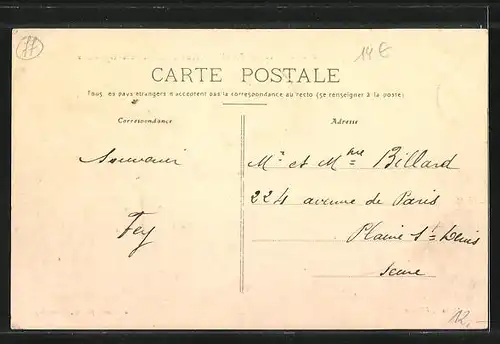 14€
CARTE POSTALE
Tous les pays étrangers n'acceptent pas la correspondance au recto (se renseigner à la poste)
Correspondance
Adresse
Souvenir
Mr et Mme Billard
224 avenue de Paris
Fey
Plaine St Denis
Seine
12,-